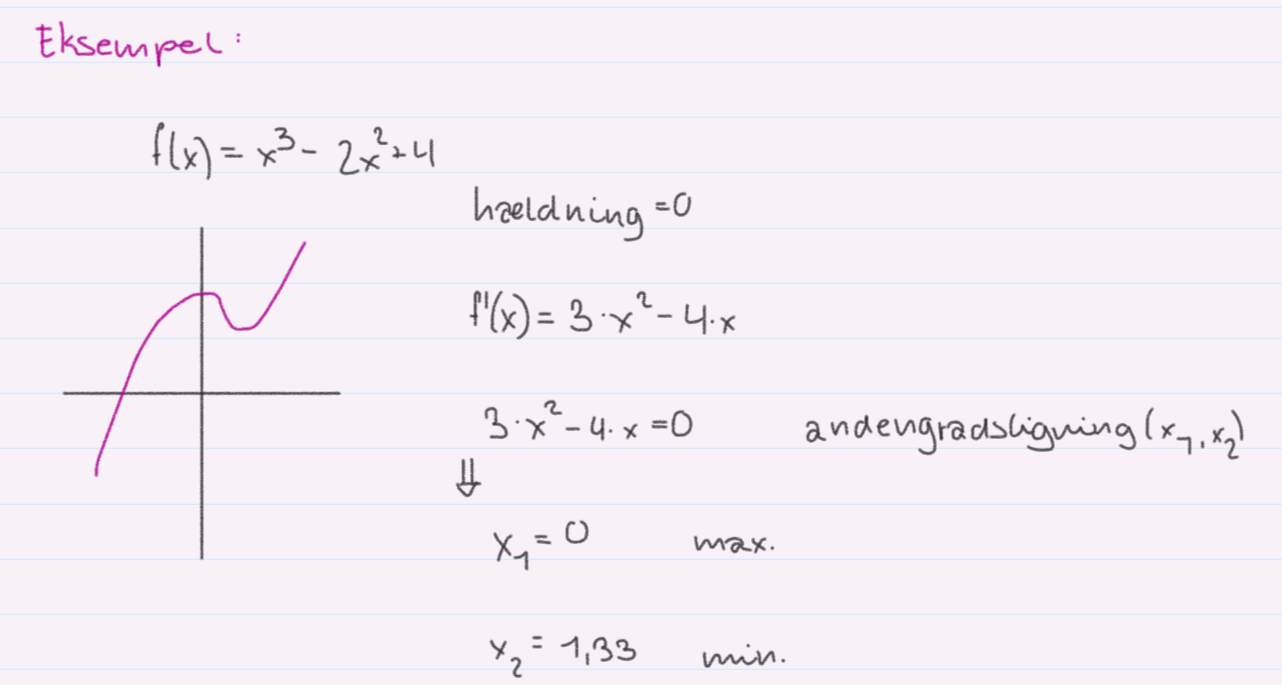 Eksempel:
f(x) = x³ - 2x² + 4
hældning = 0
f'(x) = 3·x² - 4·x
3·x² - 4·x = 0 andengradsligning (x₁, x₂)
⇓
x₁ = 0 max.
x₂ = 1,33 min.